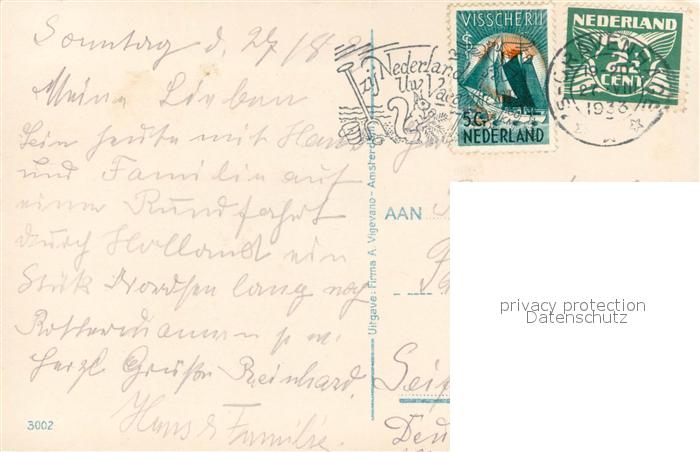 Sonntag d. 27/8
Meine Lieben
Sein heute mit Hans
und Familie auf
einer Rundfahrt
durch Holland ein
Stük Nordsee lang
herzl. Grüße Reinhard
Hans & Familie.
3002
Uitgave: Firma A. Vigevano - Amsterdam
zij Nederland
Uw
VISSCHERIJ
5 C
NEDERLAND
NEDERLAND
2½
CENT
'S-GRAVENHAGE
1936
AAN
privacy protection
Datenschutz